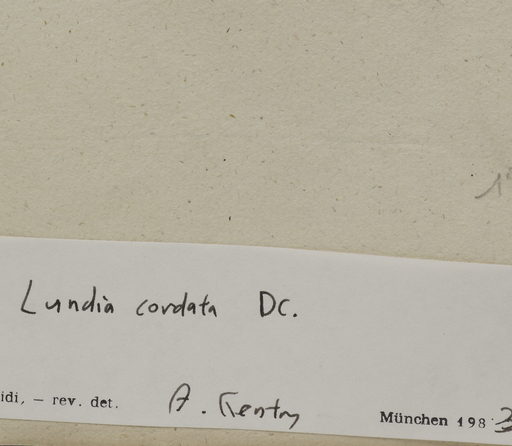 Lundia cordata DC.
idi, — rev. det. A. Gentry München 1983